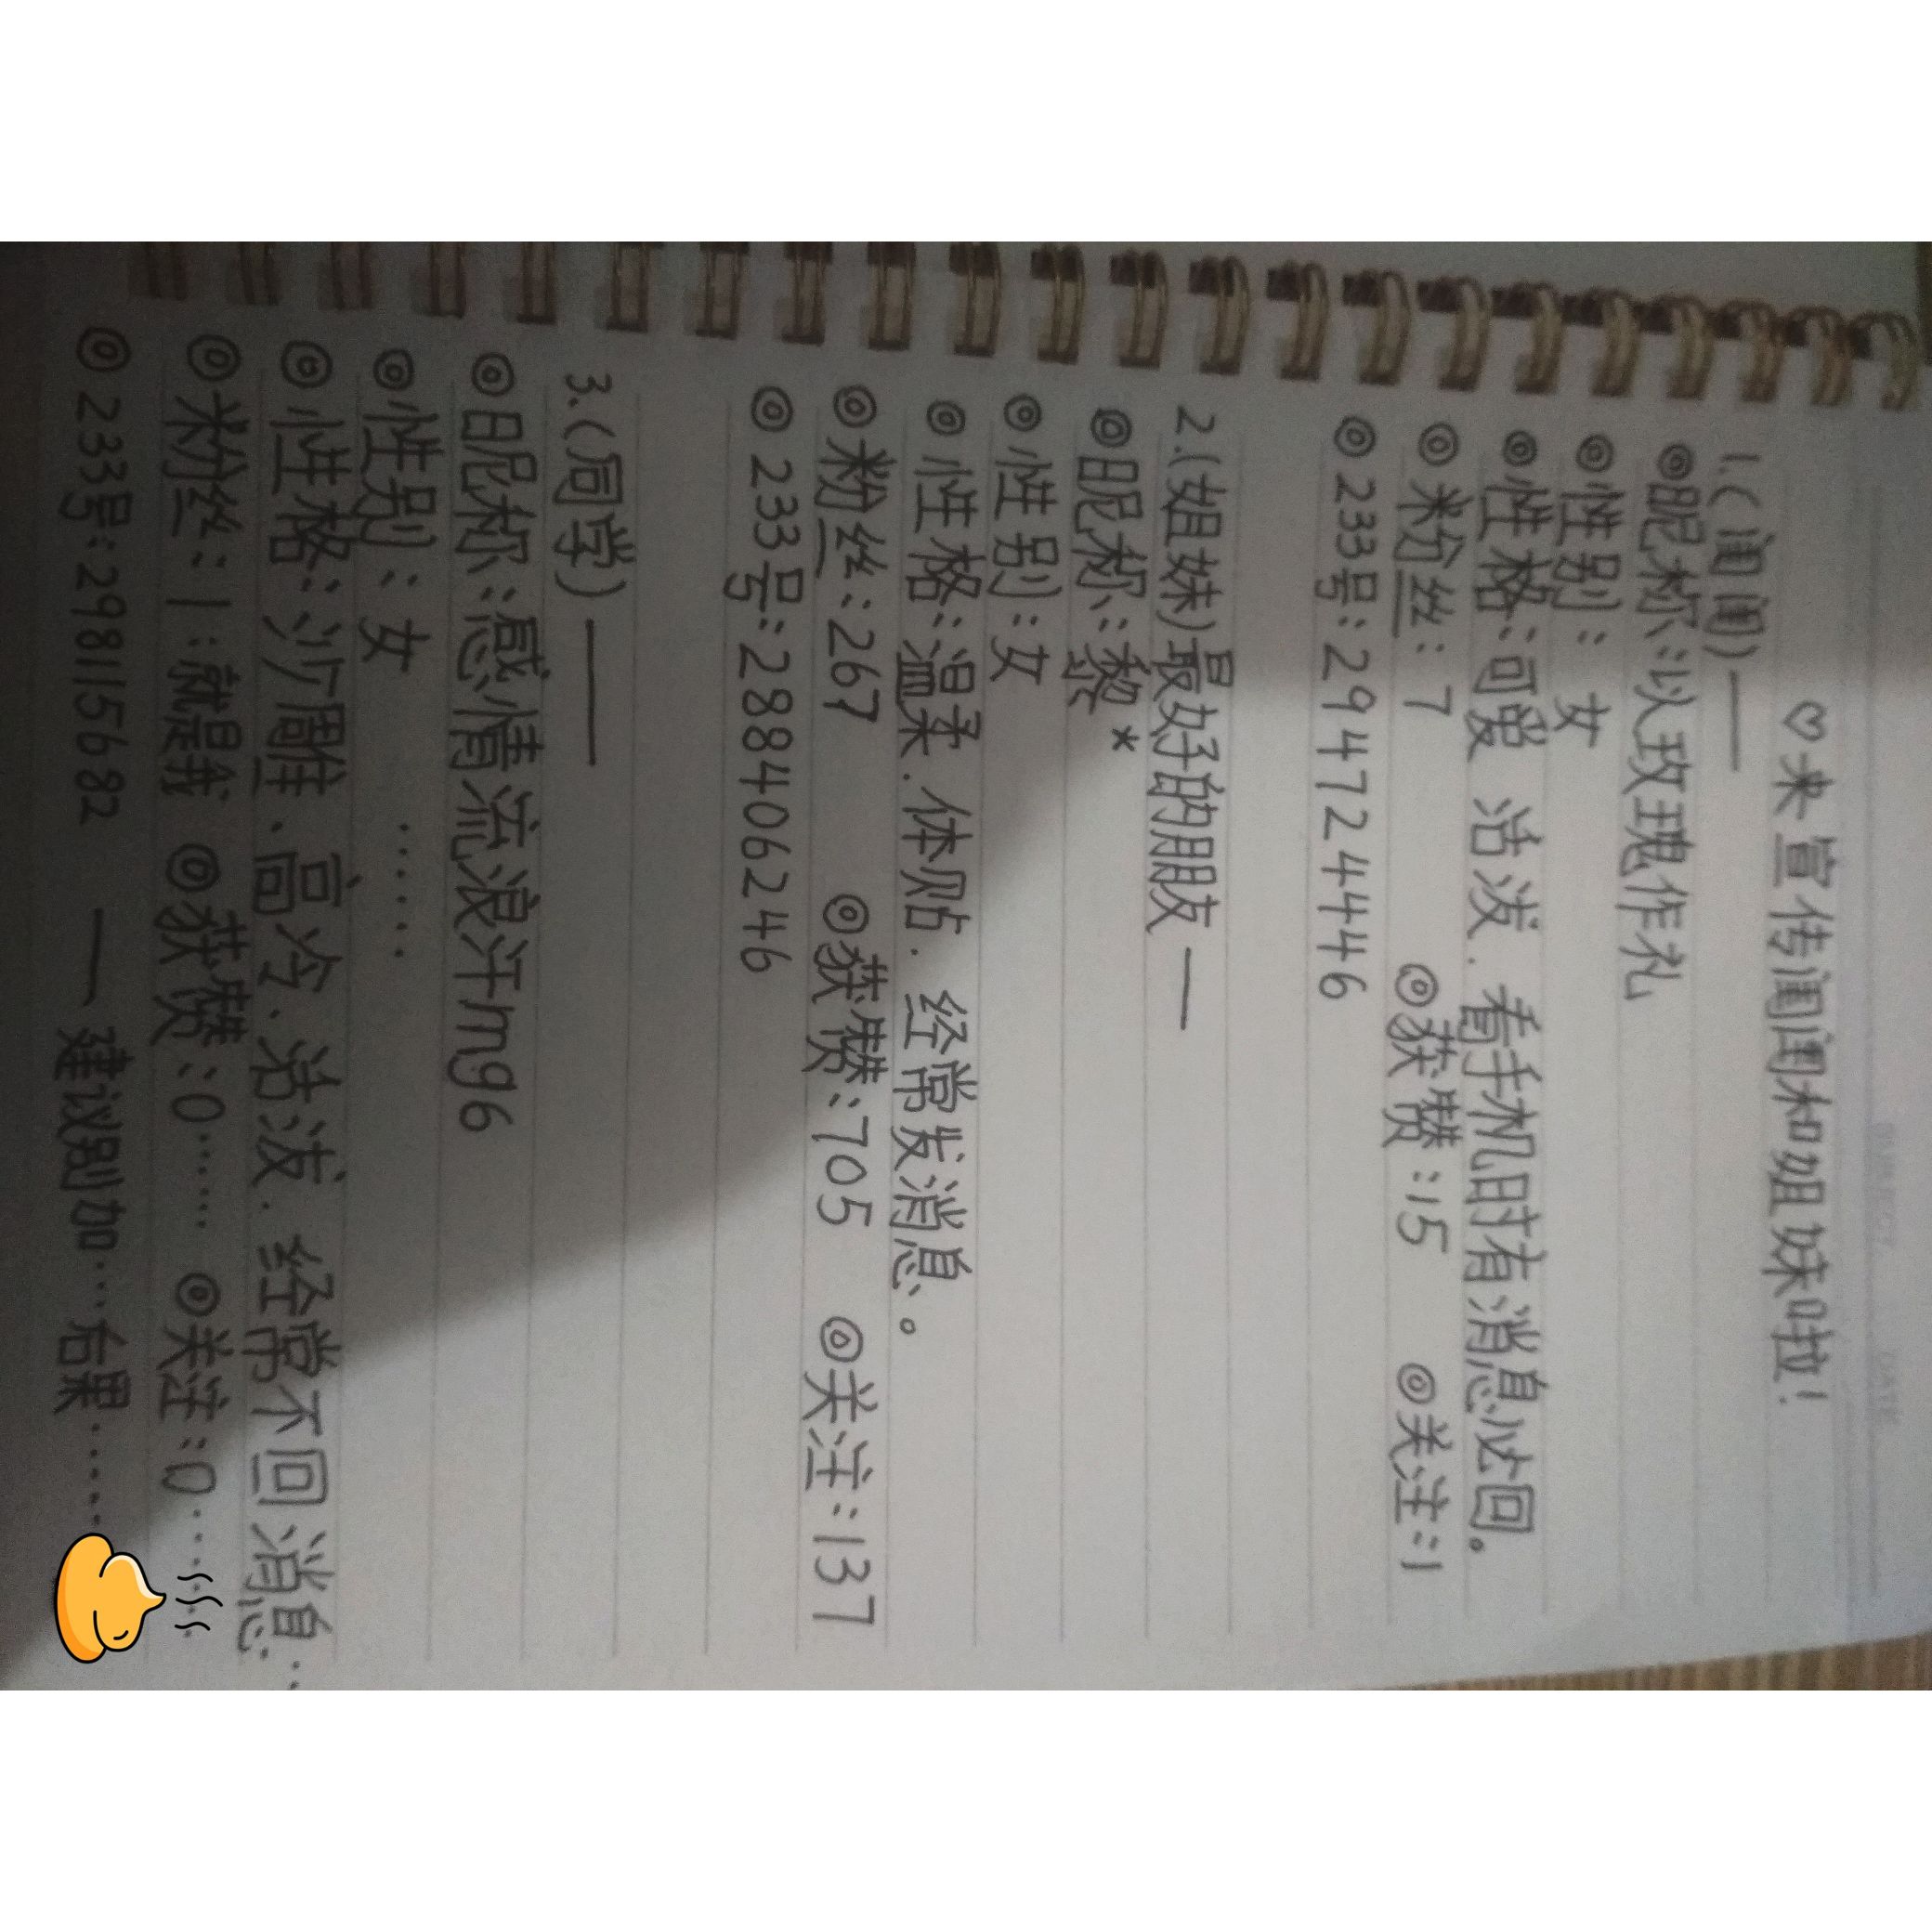 ♡来宣传闺闺和姐妹啦!
1.(闺闺)——
◎昵称:以玫瑰作礼
◎性别:女
◎性格:可爱 活泼.看手机时有消息必回。
◎粉丝:7 ◎获赞:15 ◎关注:1
◎233号:294724446
2.(姐妹)最好的朋友—
◎昵称:黎*
◎性别:女
◎性格:温柔.体贴.经常发消息。
◎粉丝:267 ◎获赞:705 ◎关注:137
◎233号:288406246
3.(同学)——
◎昵称:感情流浪汗mg6
◎性别:女 ......
◎性格:沙雕.高冷.活泼.经常不回消息...
◎粉丝:1:就是我 ◎获赞:0...... ◎关注:0......
◎233号:298115682 ——建议别加...右果......